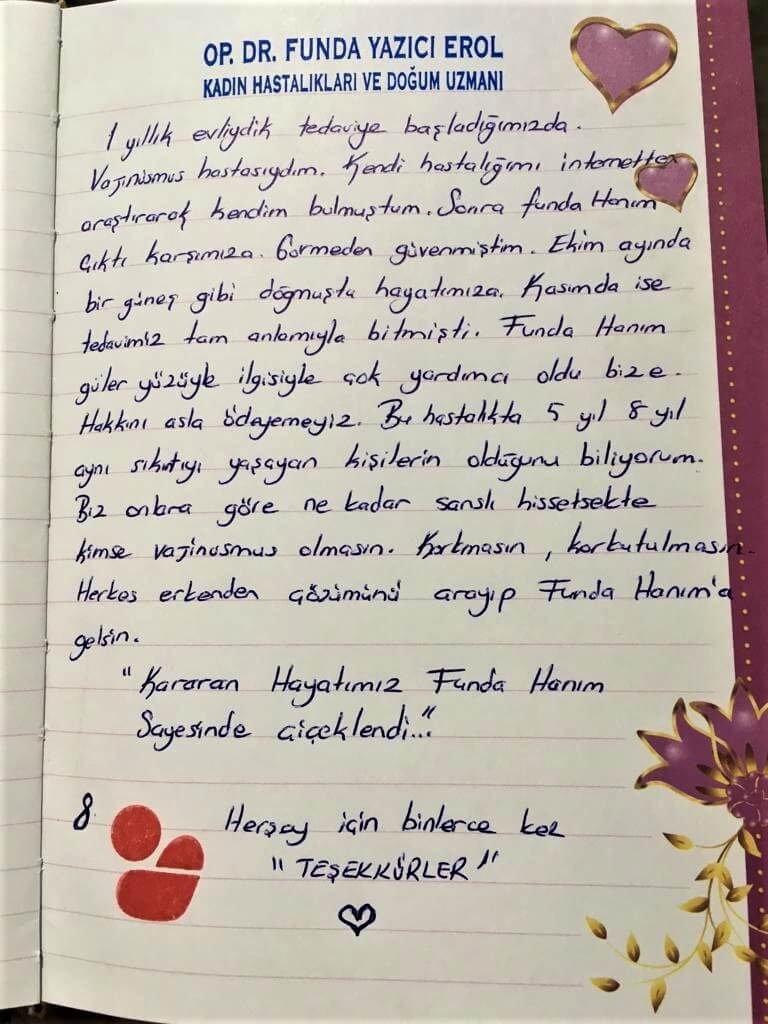 OP. DR. FUNDA YAZICI EROL
KADIN HASTALIKLARI VE DOĞUM UZMANI
1 yıllık evliydik tedaviye başladığımızda.
Vajinusmus hastasıydım. Kendi hastalığımı internetten
araştırarak kendim bulmuştum. Sonra funda Hanım
çıktı karşımıza. Görmeden güvenmiştim. Ekim ayında
bir güneş gibi doğmuştu hayatımıza. Kasımda ise
tedavimiz tam anlamıyla bitmişti. Funda Hanım
güler yüzüyle ilgisiyle çok yardımcı oldu bize.
Hakkını asla ödeyemeyiz. Bu hastalıkta 5 yıl 8 yıl
aynı sıkıntıyı yaşayan kişilerin olduğunu biliyorum.
Biz onlara göre ne kadar şanslı hissetsekte
kimse vajinusmus olmasın. Korkmasın, korkutulmasın.
Herkes erkenden çözümünü arayıp Funda Hanım'a
gelsin.
"Kararan Hayatımız Funda Hanım
Sayesinde çiçeklendi..."
8
Herşey için binlerce kez
"TEŞEKKÜRLER"